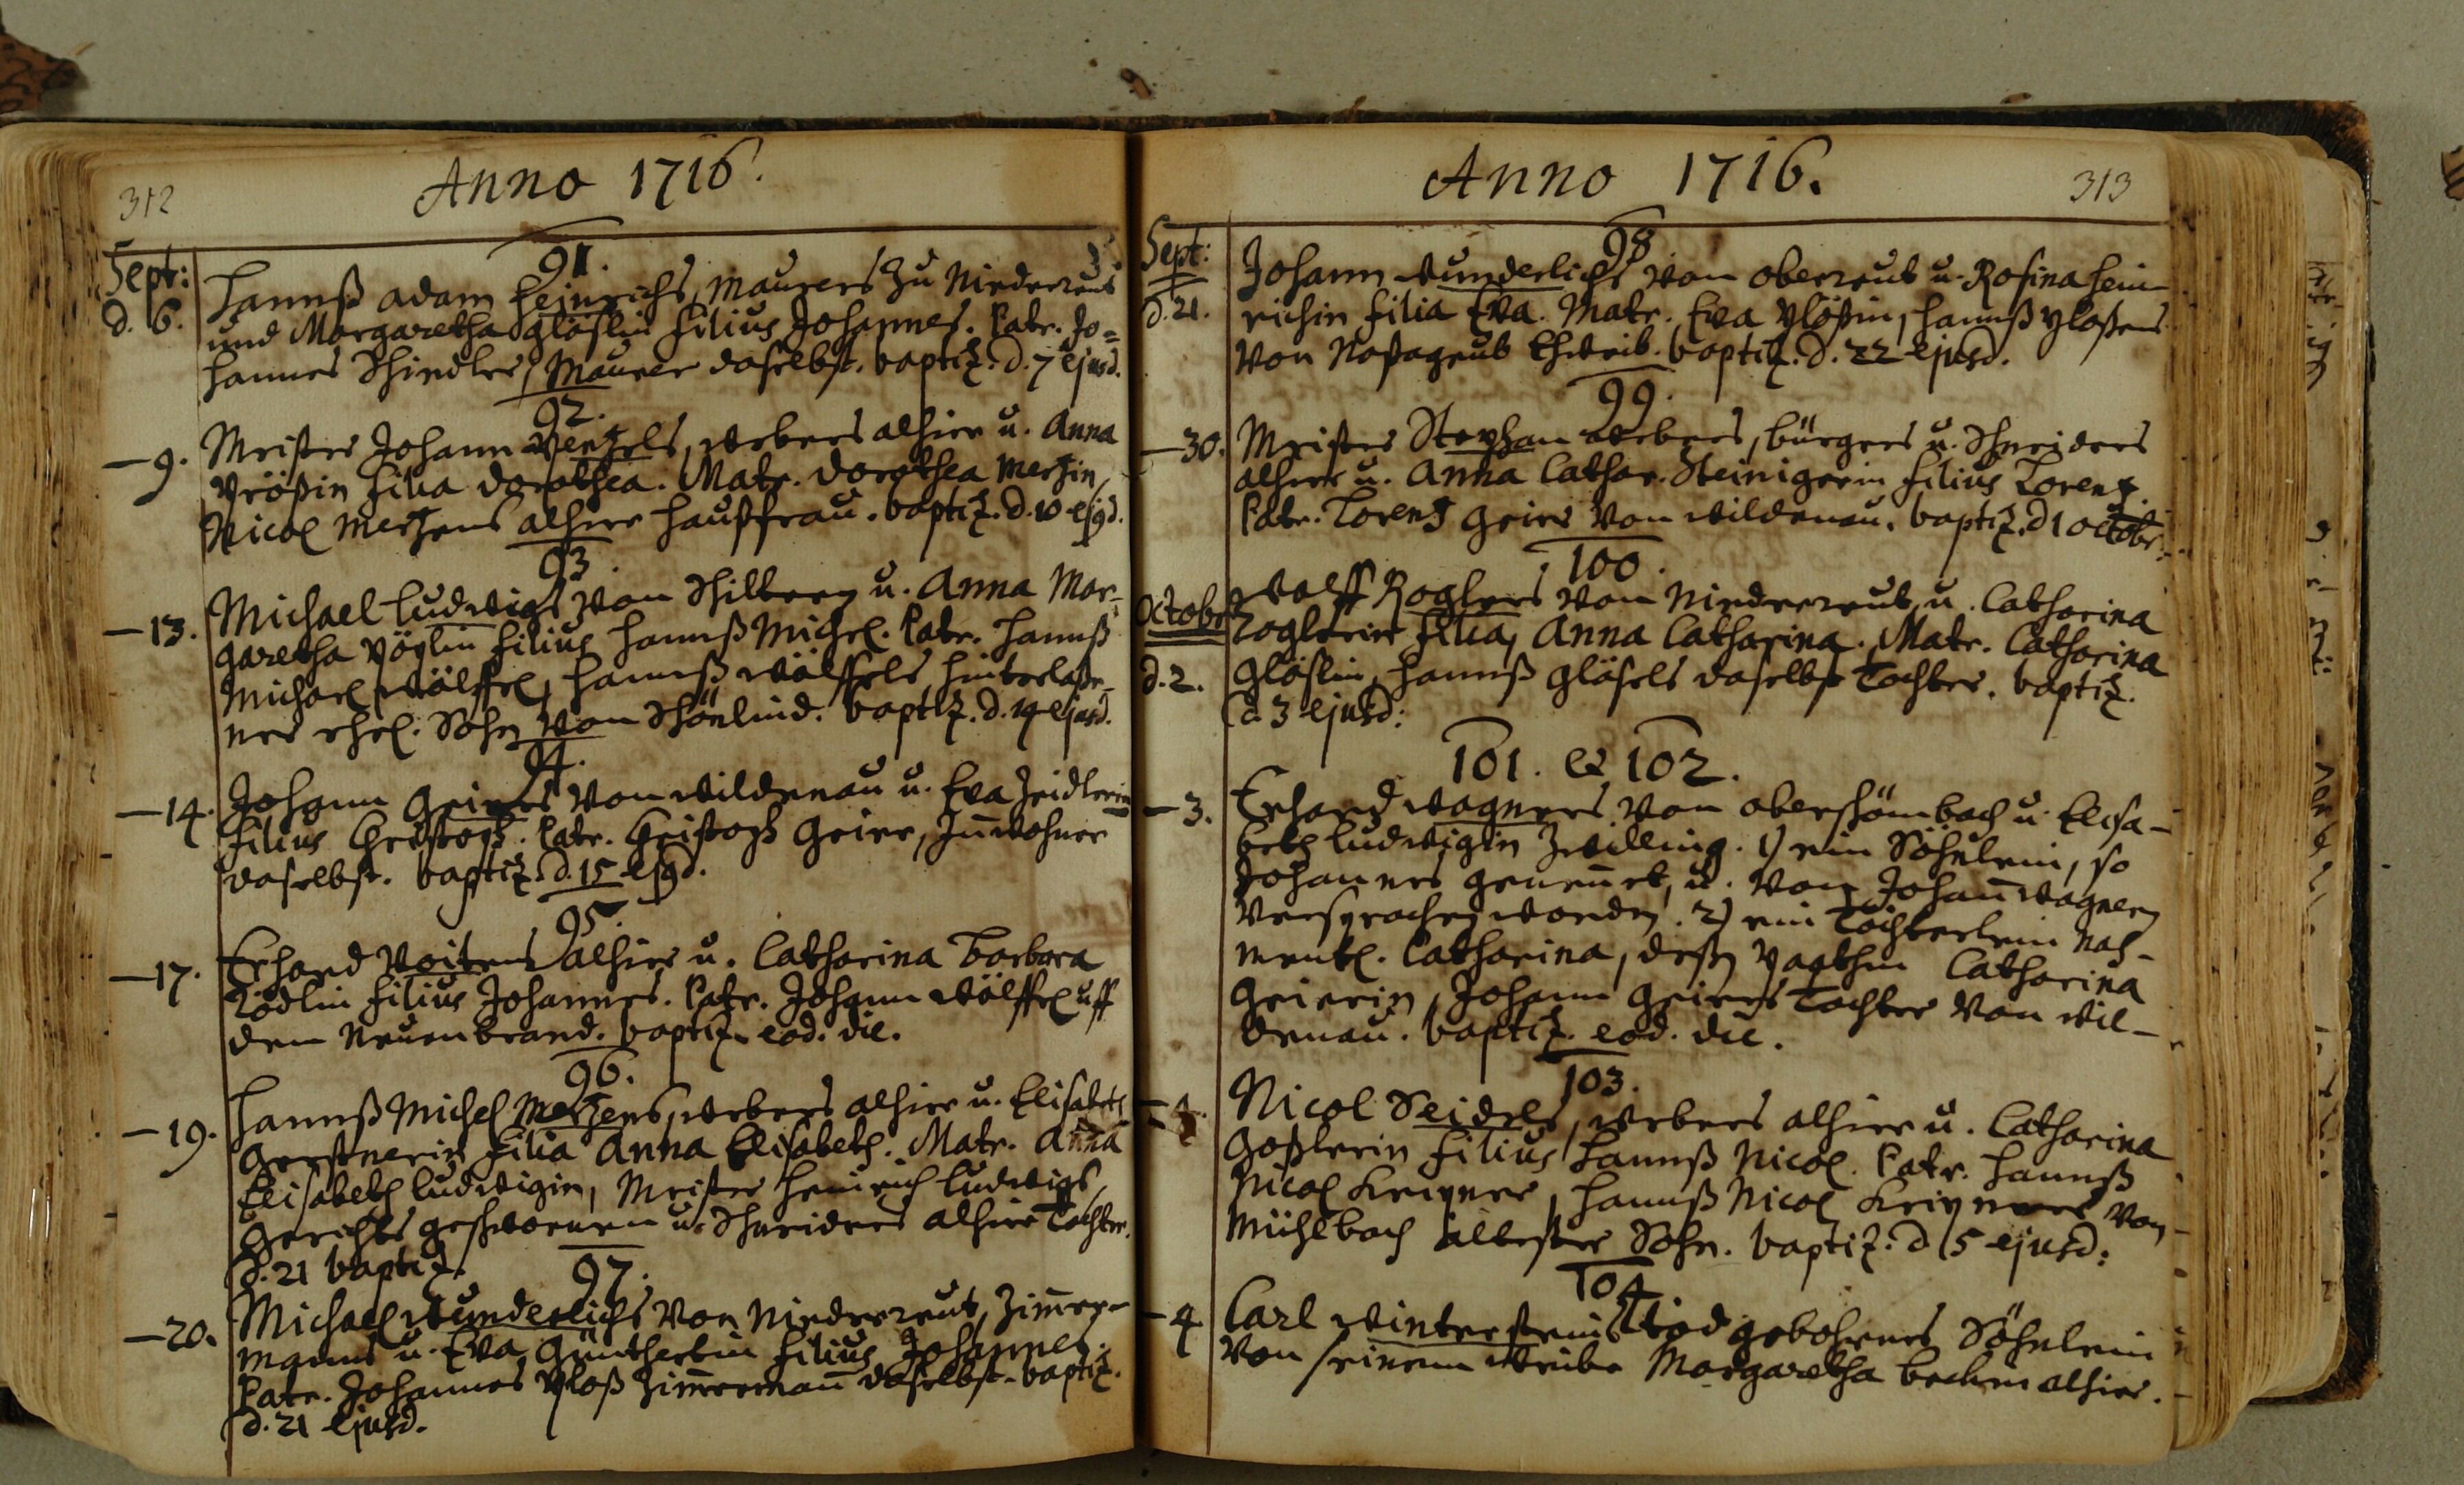 312
Anno 1716.
91.
Sept:
d. 6.
Hannß Adam Heinrichs, Maurers zu Niederreut
und Margaretha Gläslin Filius Johannes. Patr. Jo=
hannes Schindler, Maurer daselbst. baptiz. d. 7 ejusd.
92.
—9.
Meister Johann Wentzels, Webers alhier u. Anna
Filia Dorothea. Matr. Dorothea Mertzin,
Nicol Mertzens alhier Haußfrau. baptiz. d. 10 ejsd.
93.
—13.
Michael Ludwigs von Schilbern u. Anna Mar-
garetha Filius Hannß Michel. Patr. Hannß
Michael Wölffel, Hannß Wölffels hinterlaße-
ner ehel. Sohn von Schönlind. baptiz. d. 14 ejusd.
94.
—14.
Johann Geiers von Wildenau u. Eva Zeidlerin
Filius Christoph. Patr. Christoph Geier, Inwohner
daselbst. baptiz. d. 15 ejsd.
95.
—17.
Erhard Voitens alhier u. Catharina Barbara
Rödlin Filius Johannes. Patr. Johann Wölffel uff
dem Neuenbrand. baptiz. eod. die.
96.
—19.
Hannß Michel Mertzens, Webers alhier u. Elisabeth
Gerstnerin Filia Anna Elisabeth. Matr. Anna
Elisabeth Ludwigin, Meister Heinrich Ludwigs,
Gerichts geschwornen u. Schneiders alhier Tochter.
d. 21 baptiz.
97.
—20.
Michael Wunderlichs von Niederreut, Zimer-
manns u. Eva Güntherin Filius Johannes.
Patr. Johannes Ploß Zimermann daselbst. baptiz.
d. 21 ejusd.
Anno 1716.
313
98.
Sept:
d. 21.
Johann Wunderlichs von Oberreut u. Rosina Hein-
richin Filia Eva. Matr. Eva Plößin, Hannß Ploßens
von Naßagrub Eheweib. baptiz. d. 22 ejusd.
99.
—30.
Meister Stephan Webers, Bürgers u. Schneiders
alhier u. Anna Cathar. Steinigerin Filius Lorentz.
Patr. Lorentz Geier von Wildenau. baptiz. d 1 Octobr:
100.
Octobr
d. 2.
Wolff Roglers von Niederreut u. Catharina
Roglerin Filia, Anna Catharina. Matr. Catharina
Gläslin, Hannß Gläsels daselbst Tochter. baptiz.
d. 3 ejusd:
101. & 102.
—3.
Erhard Wagners von Oberschömbach u. Elisa-
beth Ludwigin Zwilling. 1) ein Söhnlein, so
Johannes genennet, u. von Johann Wagnern
versprochen worden. 2) ein Töchterlein nah-
mentl. Catharina, deßen Pathin Catharina
Geierin, Johann Geiers Tochter von Wil-
denau. baptiz. eod. die.
103.
—4.
Nicol Seidels, Webers alhier u. Catharina
Goßlerin Filius Hannß Nicol. Patr. Hannß
Nicol Kreyner, Hannß Nicol Kreyners von
Mühlbach ältester Sohn. baptiz. d. 5 ejusd:
104.
—4
Carl Wintersteins tod gebohrnes Söhnlein
von seinem Weibe Margaretha alhier.